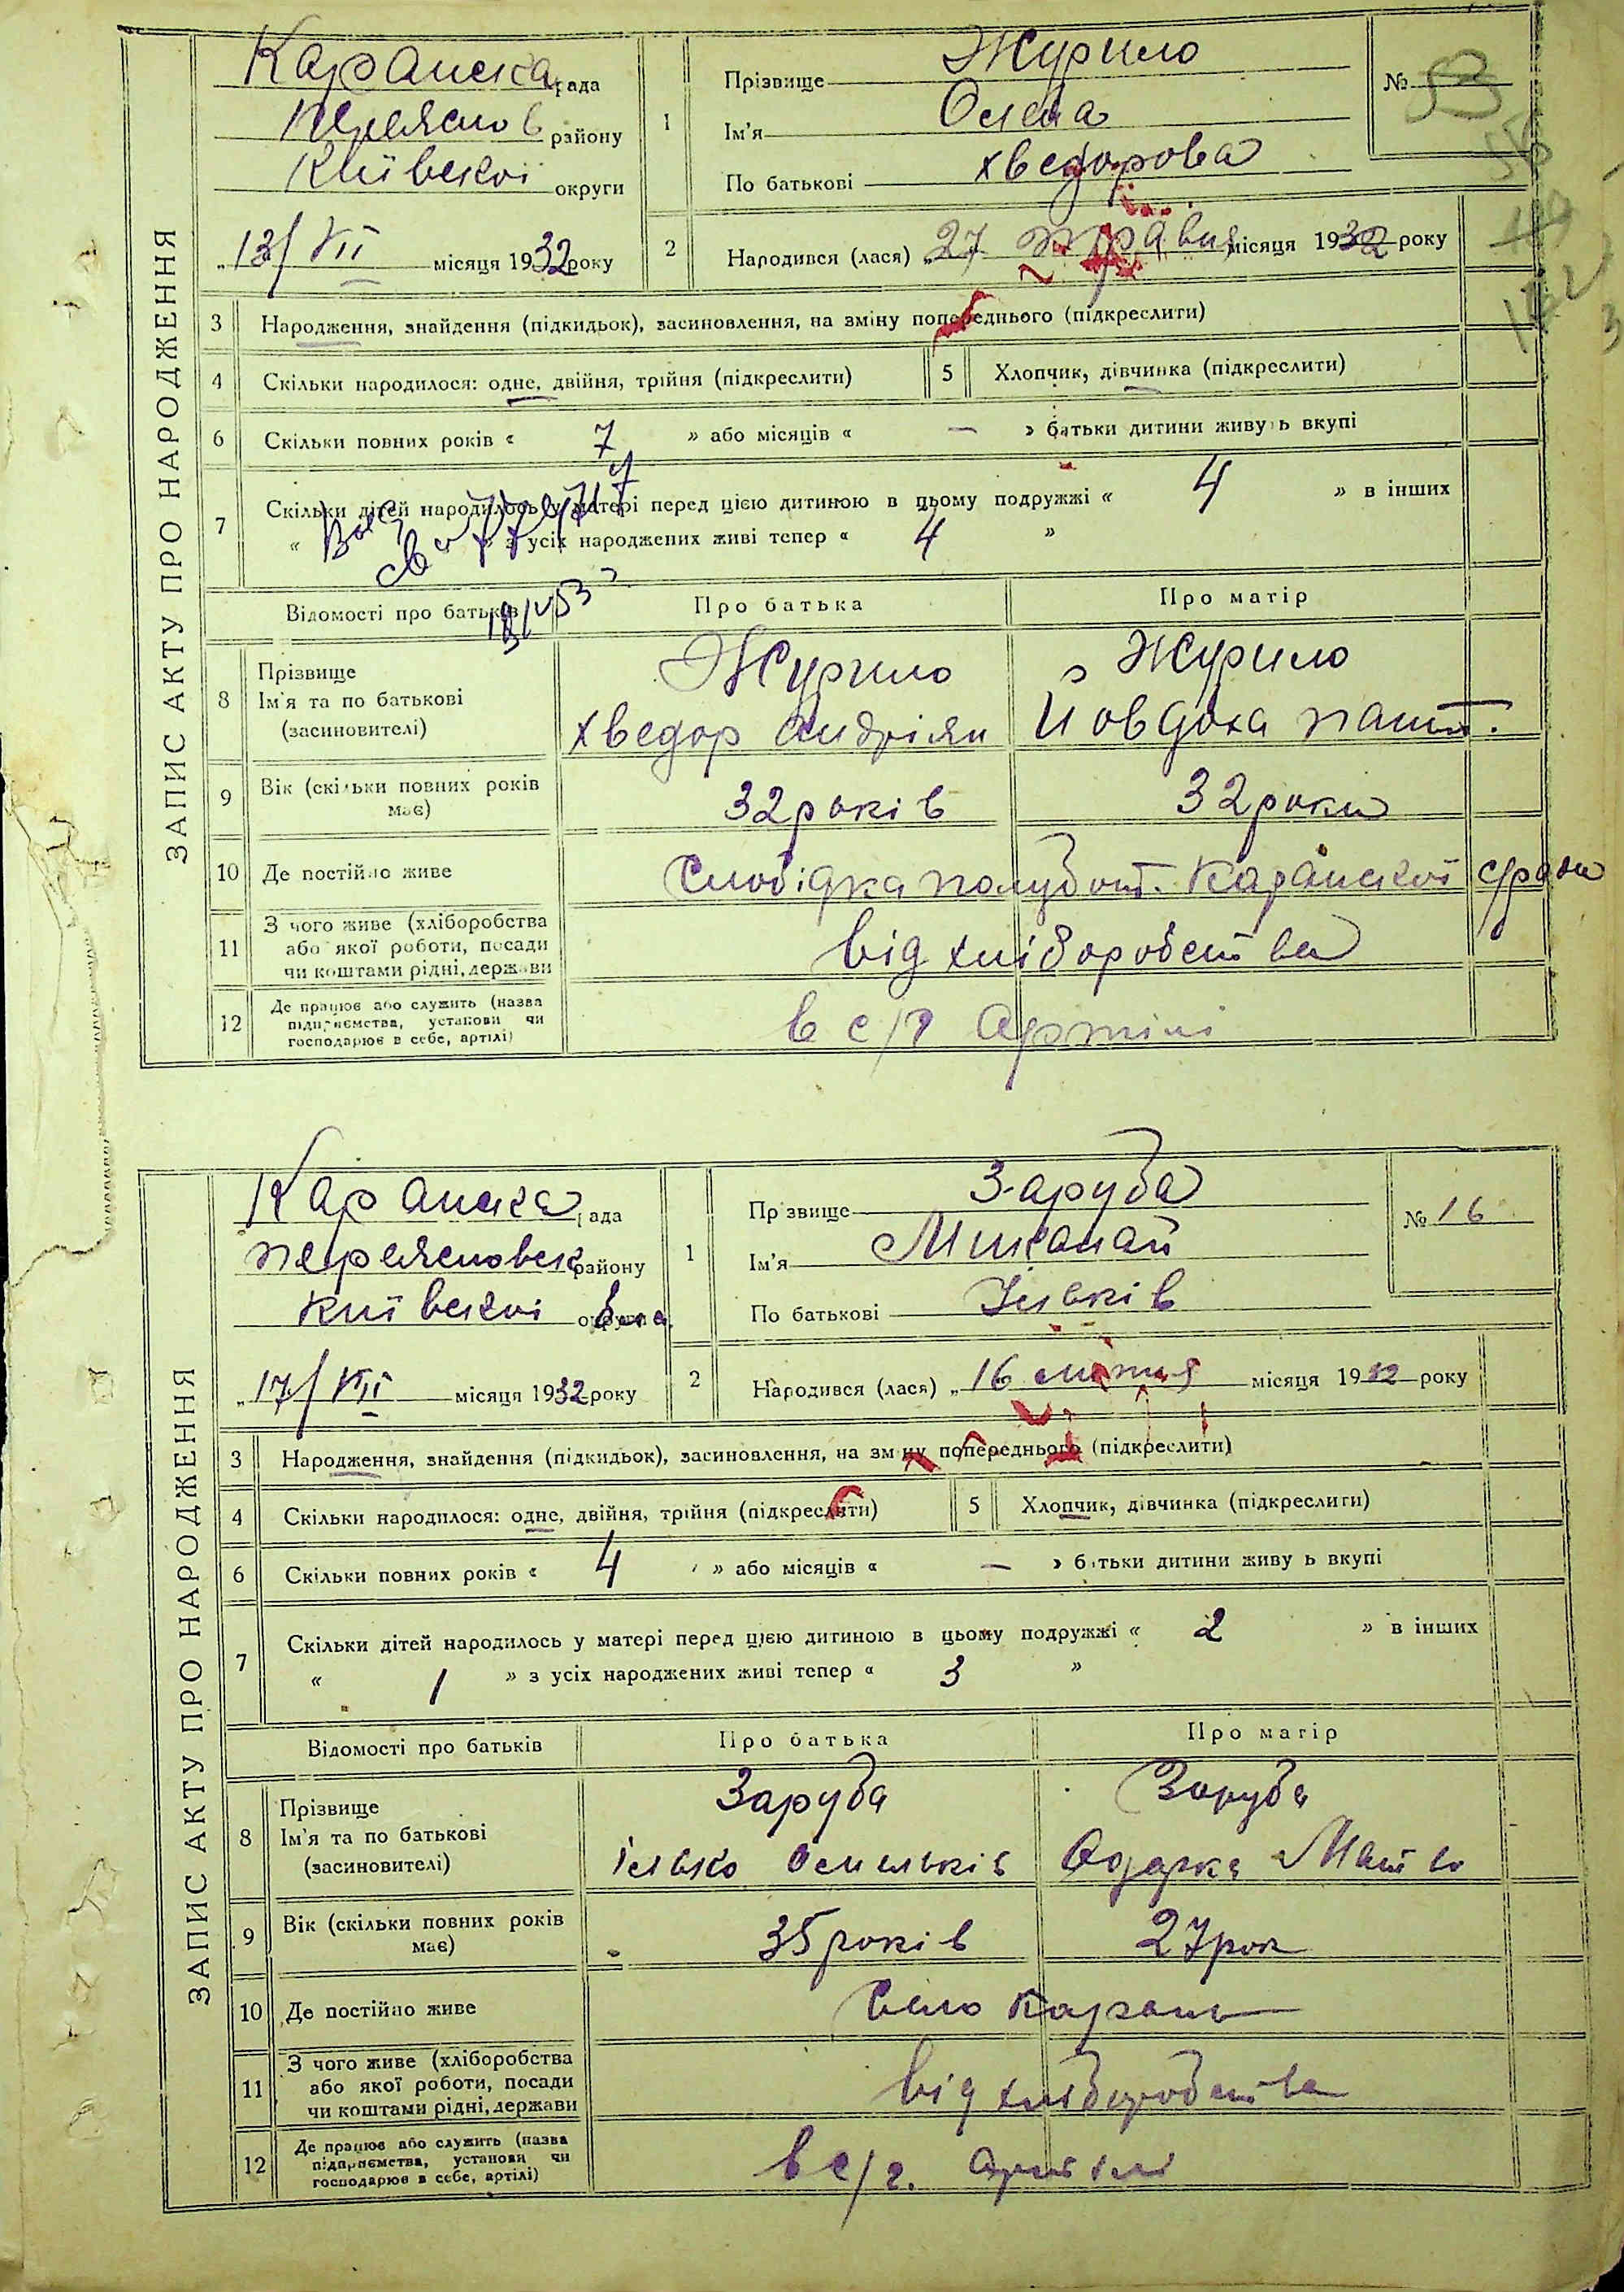 ЗАПИС АКТУ ПРО НАРОДЖЕННЯ
Каранска рада
району
Київскої округи
„13/VII місяця 1932 року
1
Прізвище Журило
Ім'я Олена
По батькові хведорова
№
2
Народився (лася) „27 травня місяця 1932 року
3 Народження, знайдення (підкидьок), засиновлення, на зміну попереднього (підкреслити)
4 Скільки народилося: одне, двійня, трійня (підкреслити)
5 Хлопчик, дівчинка (підкреслити)
6 Скільки повних років « 7 » або місяців « — » батьки дитини живуть вкупі
7 Скільки дітей народилось у матері перед цією дитиною в цьому подружжі « 4 » в інших
« » з усіх народжених живі тепер « 4 »
Відомості про батьків
Про батька
Про матір
8 Прізвище
Ім'я та по батькові
(засиновителі)
Журило
хведор Андріян
Журило
Иовдоха
9 Вік (скільки повних років має)
32 років
32 роки
10 Де постійно живе
Слобідка полубот. Каранскої с/ради
11 З чого живе (хліборобства
або якої роботи, посади
чи коштами рідні, держави
від хліборобства
12 Де працює або служить (назва
підприємства, установи чи
господарює в себе, артілі)
в с/г Артілі
ЗАПИС АКТУ ПРО НАРОДЖЕННЯ
Каранска рада
Переясловск району
Київскої округи
„17/VII місяця 1932 року
1
Прізвище Заруба
Ім'я Миколай
По батькові Ільків
№ 16
2
Народився (лася) „16 липня місяця 1932 року
3 Народження, знайдення (підкидьок), засиновлення, на зміну попереднього (підкреслити)
4 Скільки народилося: одне, двійня, трійня (підкреслити)
5 Хлопчик, дівчинка (підкреслити)
6 Скільки повних років « 4 » або місяців « — » батьки дитини живуть вкупі
7 Скільки дітей народилось у матері перед цією дитиною в цьому подружжі « 2 » в інших
« 1 » з усіх народжених живі тепер « 3 »
Відомості про батьків
Про батька
Про матір
8 Прізвище
Ім'я та по батькові
(засиновителі)
Заруба
Ілько Омельків
Заруба
Одарка Матв
9 Вік (скільки повних років має)
35 років
27 рок
10 Де постійно живе
Село Карань
11 З чого живе (хліборобства
або якої роботи, посади
чи коштами рідні, держави
від хліборобства
12 Де працює або служить (назва
підприємства, установи чи
господарює в себе, артілі)
в с/г. Артілі